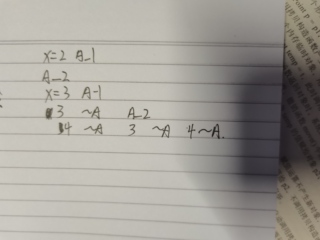 x=2 A_1
A_2
x=3 A-1
3 ~A A_2
4 ~A 3 ~A 4 ~A.